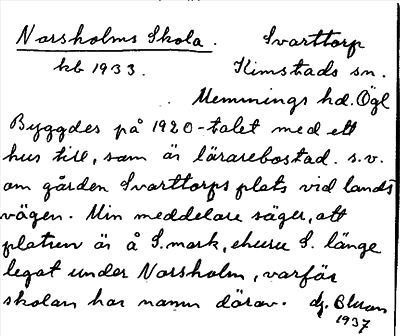 Norsholms Skola. Svarttorp
kb 1933. Kimstads sn.
Memmings hd. Ögl
Byggdes på 1920-talet med ett
hus till, som är lärarebostad. s.v.
om gården Svarttorps plats vid lands
vägen. Min meddelare säger, att
platsen är å S. mark, ehuru S. länge
legat under Norsholm, varför
skolan har namn därav.
1937